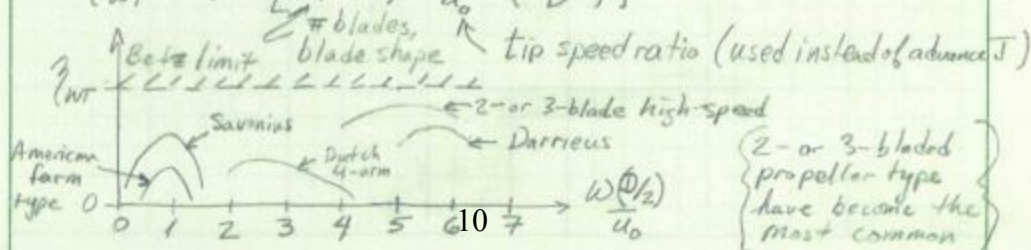 # blades,
blade shape
u₀
tip speed ratio (used instead of advance J)
Betz limit
η_WT
2- or 3-blade high-speed
Savonius
Darrieus
American
farm
type
Dutch
4-arm
0
0 1 2 3 4 5 6 7
10
ω(D/2)
u₀
2- or 3-bladed
propeller type
have become the
most common